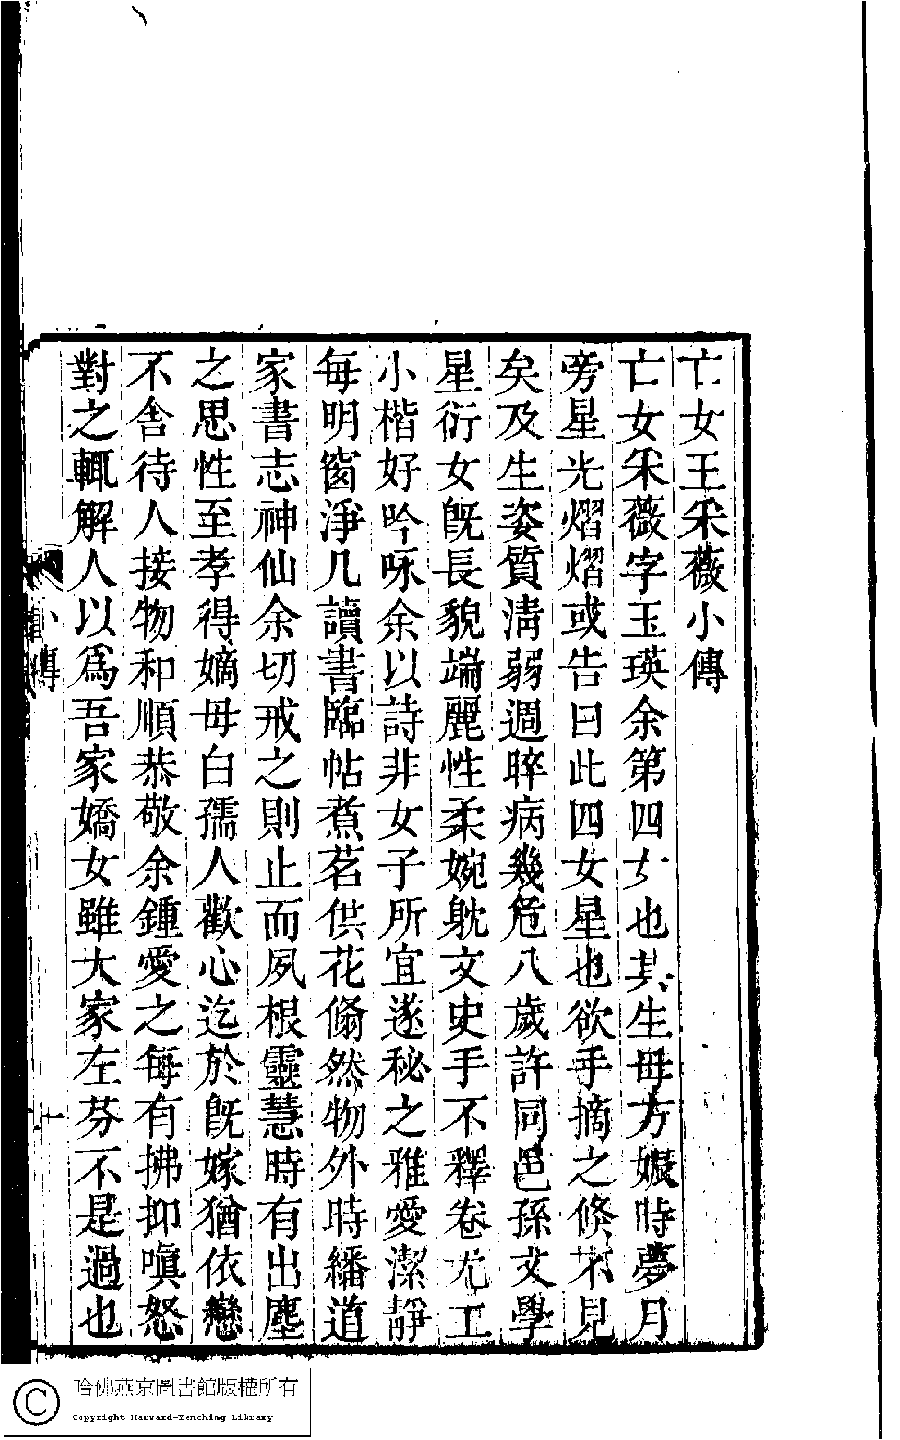 亡女王采薇小傳
亡女采薇字玉瑛余第四女也其生母方娠時夢月
旁星光熠熠或告曰此四女星也欲手摘之倐不見
矣及生姿質淸弱週晬病幾危八歲許同邑孫文學
星衍女旣長貌端麗性柔婉躭文史手不釋卷尤工
小楷好吟咏余以詩非女子所宜遂秘之雅愛潔靜
每明窗淨几讀書臨帖煮茗供花翛然物外時繙道
家書志神仙余切戒之則止而夙根靈慧時有出塵
之思性至孝得嫡母白孺人歡心迄於旣嫁猶依戀
不舍待人接物和順恭敬余鍾愛之每有拂抑嗔怒
對之輒解人以爲吾家嬌女雖大家左芬不是過也
小傳
一
哈佛燕京圖書館版權所有
Copyright Harvard-Yenching Library